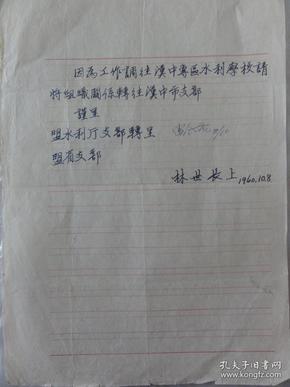 因為工作調往漢中專區水利學校請
將組織關係轉往漢中市支部
謹呈
盟水利厅支部轉呈
盟省支部
林世長上 1960.10.8
孔夫子旧书网